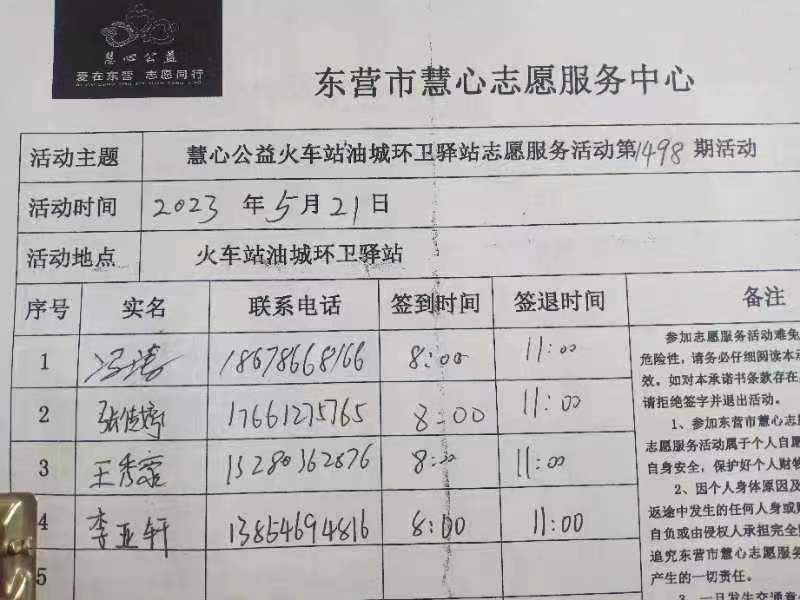 慧心公益
爱在东营 志愿同行
东营市慧心志愿服务中心
活动主题 慧心公益火车站油城环卫驿站志愿服务活动第1498期活动
活动时间 2023年5月21日
活动地点 火车站油城环卫驿站
序号 实名 联系电话 签到时间 签退时间 备注
1 18678668166 8:00 11:00
2 17661275765 8:00 11:00
3 王秀 13280362876 8:00 11:00
4 李亚轩 13854694816 8:00 11:00
5
参加志愿服务活动难免
危险性，请务必仔细阅读本
效。如对本承诺书条款存在
请拒绝签字并退出活动。
1、参加东营市慧心志
志愿服务活动属于个人自愿
自身安全，保护好个人财物
2、因个人身体原因及
返途中发生的任何人身或
自负或由侵权人承担完全
追究东营市慧心志愿服务
产生的一切责任。
3、一旦发生交通意